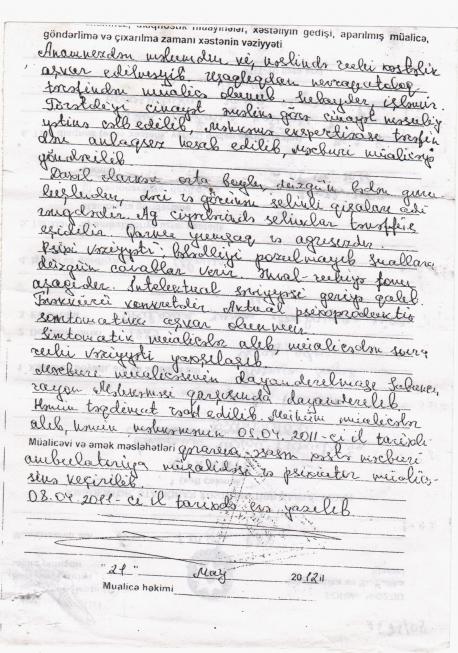 diaqnostik müayinələr, xəstəliyin gedişi, aparılmış müalicə,
göndərilmə və çıxarılma zamanı xəstənin vəziyyəti
Anamnezdən məlumdur ki, nəslində ruhi xəstəlik
aşkar edilməyib uşaqlıqdan
tərəfindən müalicə olunub Subaydır, işləmir.
Törətdiyi cinayət əməlinə görə cinayət məsuliy
yətinə cəlb edilib, məhkəmə ekspertizası tərəfin
dən anlaqsız hesab edilib, məcburi müalicəyə
göndərilib
Daxil olarkən orta boylu, düzgün bədən quru
luşludur, dəri və görünən selikli qişaları adi
rəngdədir. Ağ ciyərlərində tənəffüs
eşidilir. Qarnı yumşaq və ağrısızdır.
Psixi vəziyyəti: pozulmayıb suallara
düzgün cavablar verir. Əhval-ruhiyə fonu
aşağıdır. İntelektual səviyyəsi geriyə qalıb.
Təfəkkürü konkretdir. Aktual psixoproduktiv
simtomatika aşkar olunmur.
Simtomatik müalicələr alıb, müalicədən sonra
ruhi vəziyyəti yaxşılaşıb.
Məcburi müalicəsinin dayandırılması Sabunçu
rayon Məhkəməsi qarşısında dayandırılıb
Həmin təqdimat rədd edilib. müalicələr
alıb, həmin məhkəmənin 05.04.2011-ci il tarixli
Müalicəvi və əmək məsləhətləri qərarına əsasən xəstə məcburi
ambulatoriya müşahidəsi və psixiatr müalicə-
sinə keçirilib.
08.04.2011-ci il tarixdə evə yazılıb.
"21" May 2012 il
Müalicə həkimi